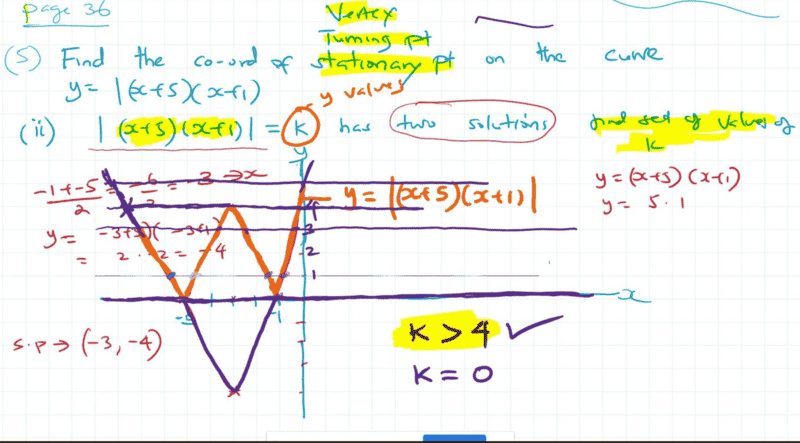 page 36
Vertex
Turning pt
(5) Find the co-ord of stationary pt on the curve
y = |(x+5)(x+1)
y values
(ii) |(x+5)(x+1)| = k has two solutions find set of values of
k
y
-1+-5/2 = -6/2 = -3 → x
y = |(x+5)(x+1)|
y = (x+5)(x+1)
y = 5.1
y = -3+5)(-3+1)
= 2.-2 = -4
4
3
2
1
-5
-1
x
s.p → (-3, -4)
K > 4 ✓
K = 0